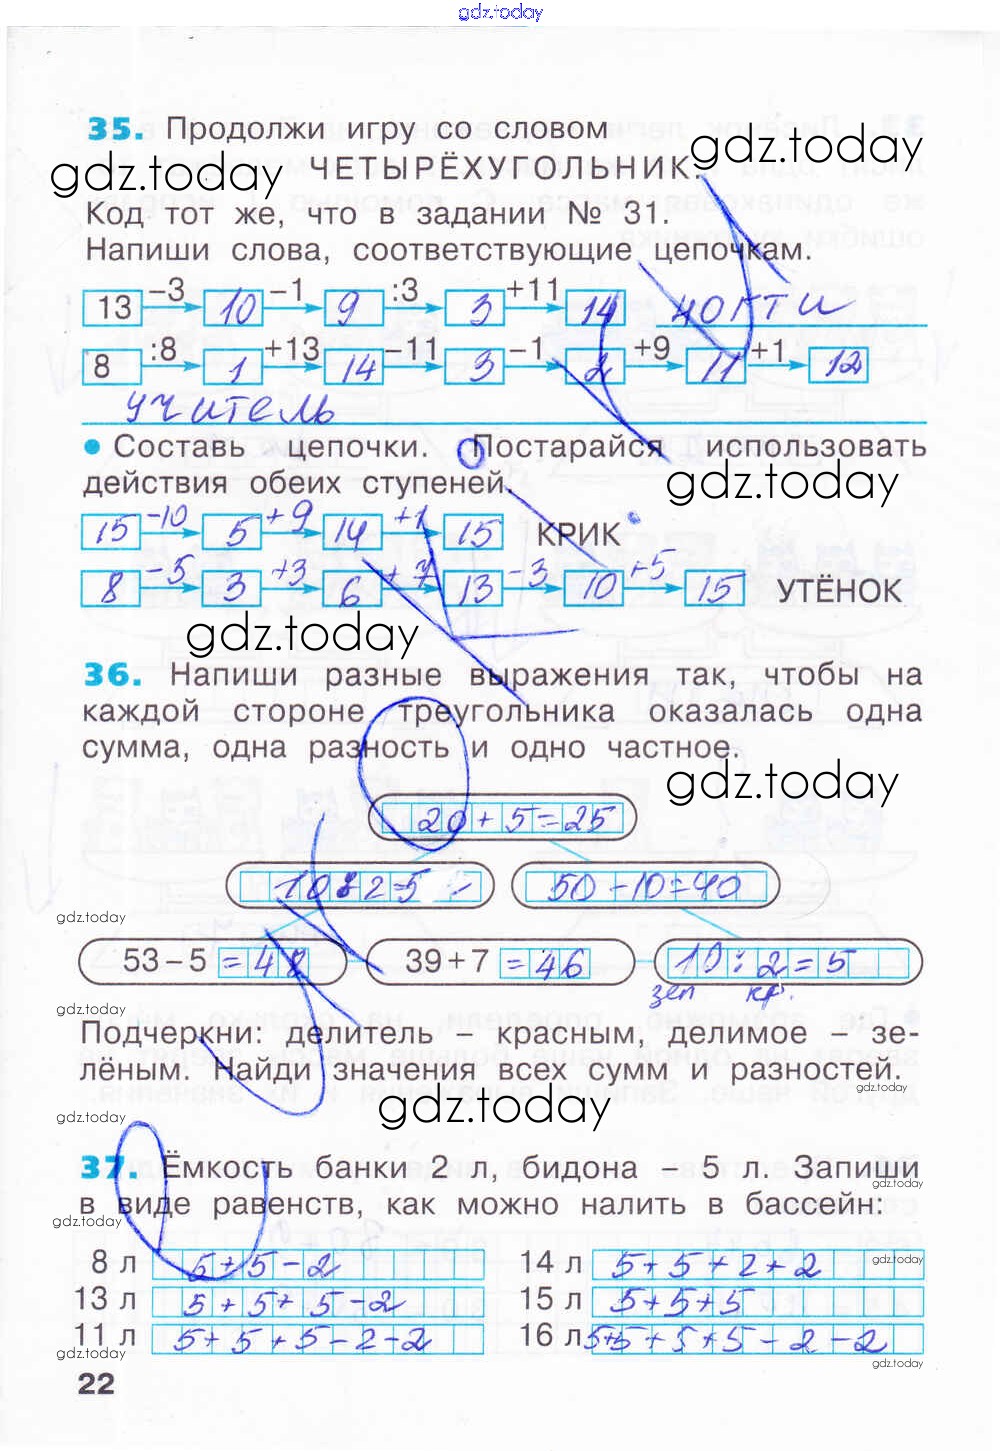 gdz.today
35. Продолжи игру со словом
ЧЕТЫРЁХУГОЛЬНИК.
gdz.today
gdz.today
Код тот же, что в задании № 31.
Напиши слова, соответствующие цепочкам.
13 −3 10 −1 9 :3 3 +11 14 ногти
8 :8 1 +13 14 −11 3 −1 2 +9 11 +1 12
учитель
• Составь цепочки. Постарайся использовать
действия обеих ступеней.
gdz.today
15 −10 5 +9 14 +1 15 КРИК
8 −5 3 +3 6 +7 13 −3 10 +5 15 УТЁНОК
gdz.today
36. Напиши разные выражения так, чтобы на
каждой стороне треугольника оказалась одна
сумма, одна разность и одно частное.
gdz.today
20+5=25
10:2=5 50−10=40
gdz.today
53−5 =48 39+7 =46 10:2=5
зел кр.
gdz.today
Подчеркни: делитель – красным, делимое – зе-
лёным. Найди значения всех сумм и разностей.
gdz.today
gdz.today
gdz.today
37. Ёмкость банки 2 л, бидона – 5 л. Запиши
gdz.today
в виде равенств, как можно налить в бассейн:
gdz.today
8 л 5+5−2 14 л 5+5+2+2
gdz.today
13 л 5+5+5−2 15 л 5+5+5
11 л 5+5+5−2−2 16 л 5+5+5+5−2−2
gdz.today
gdz.today
22